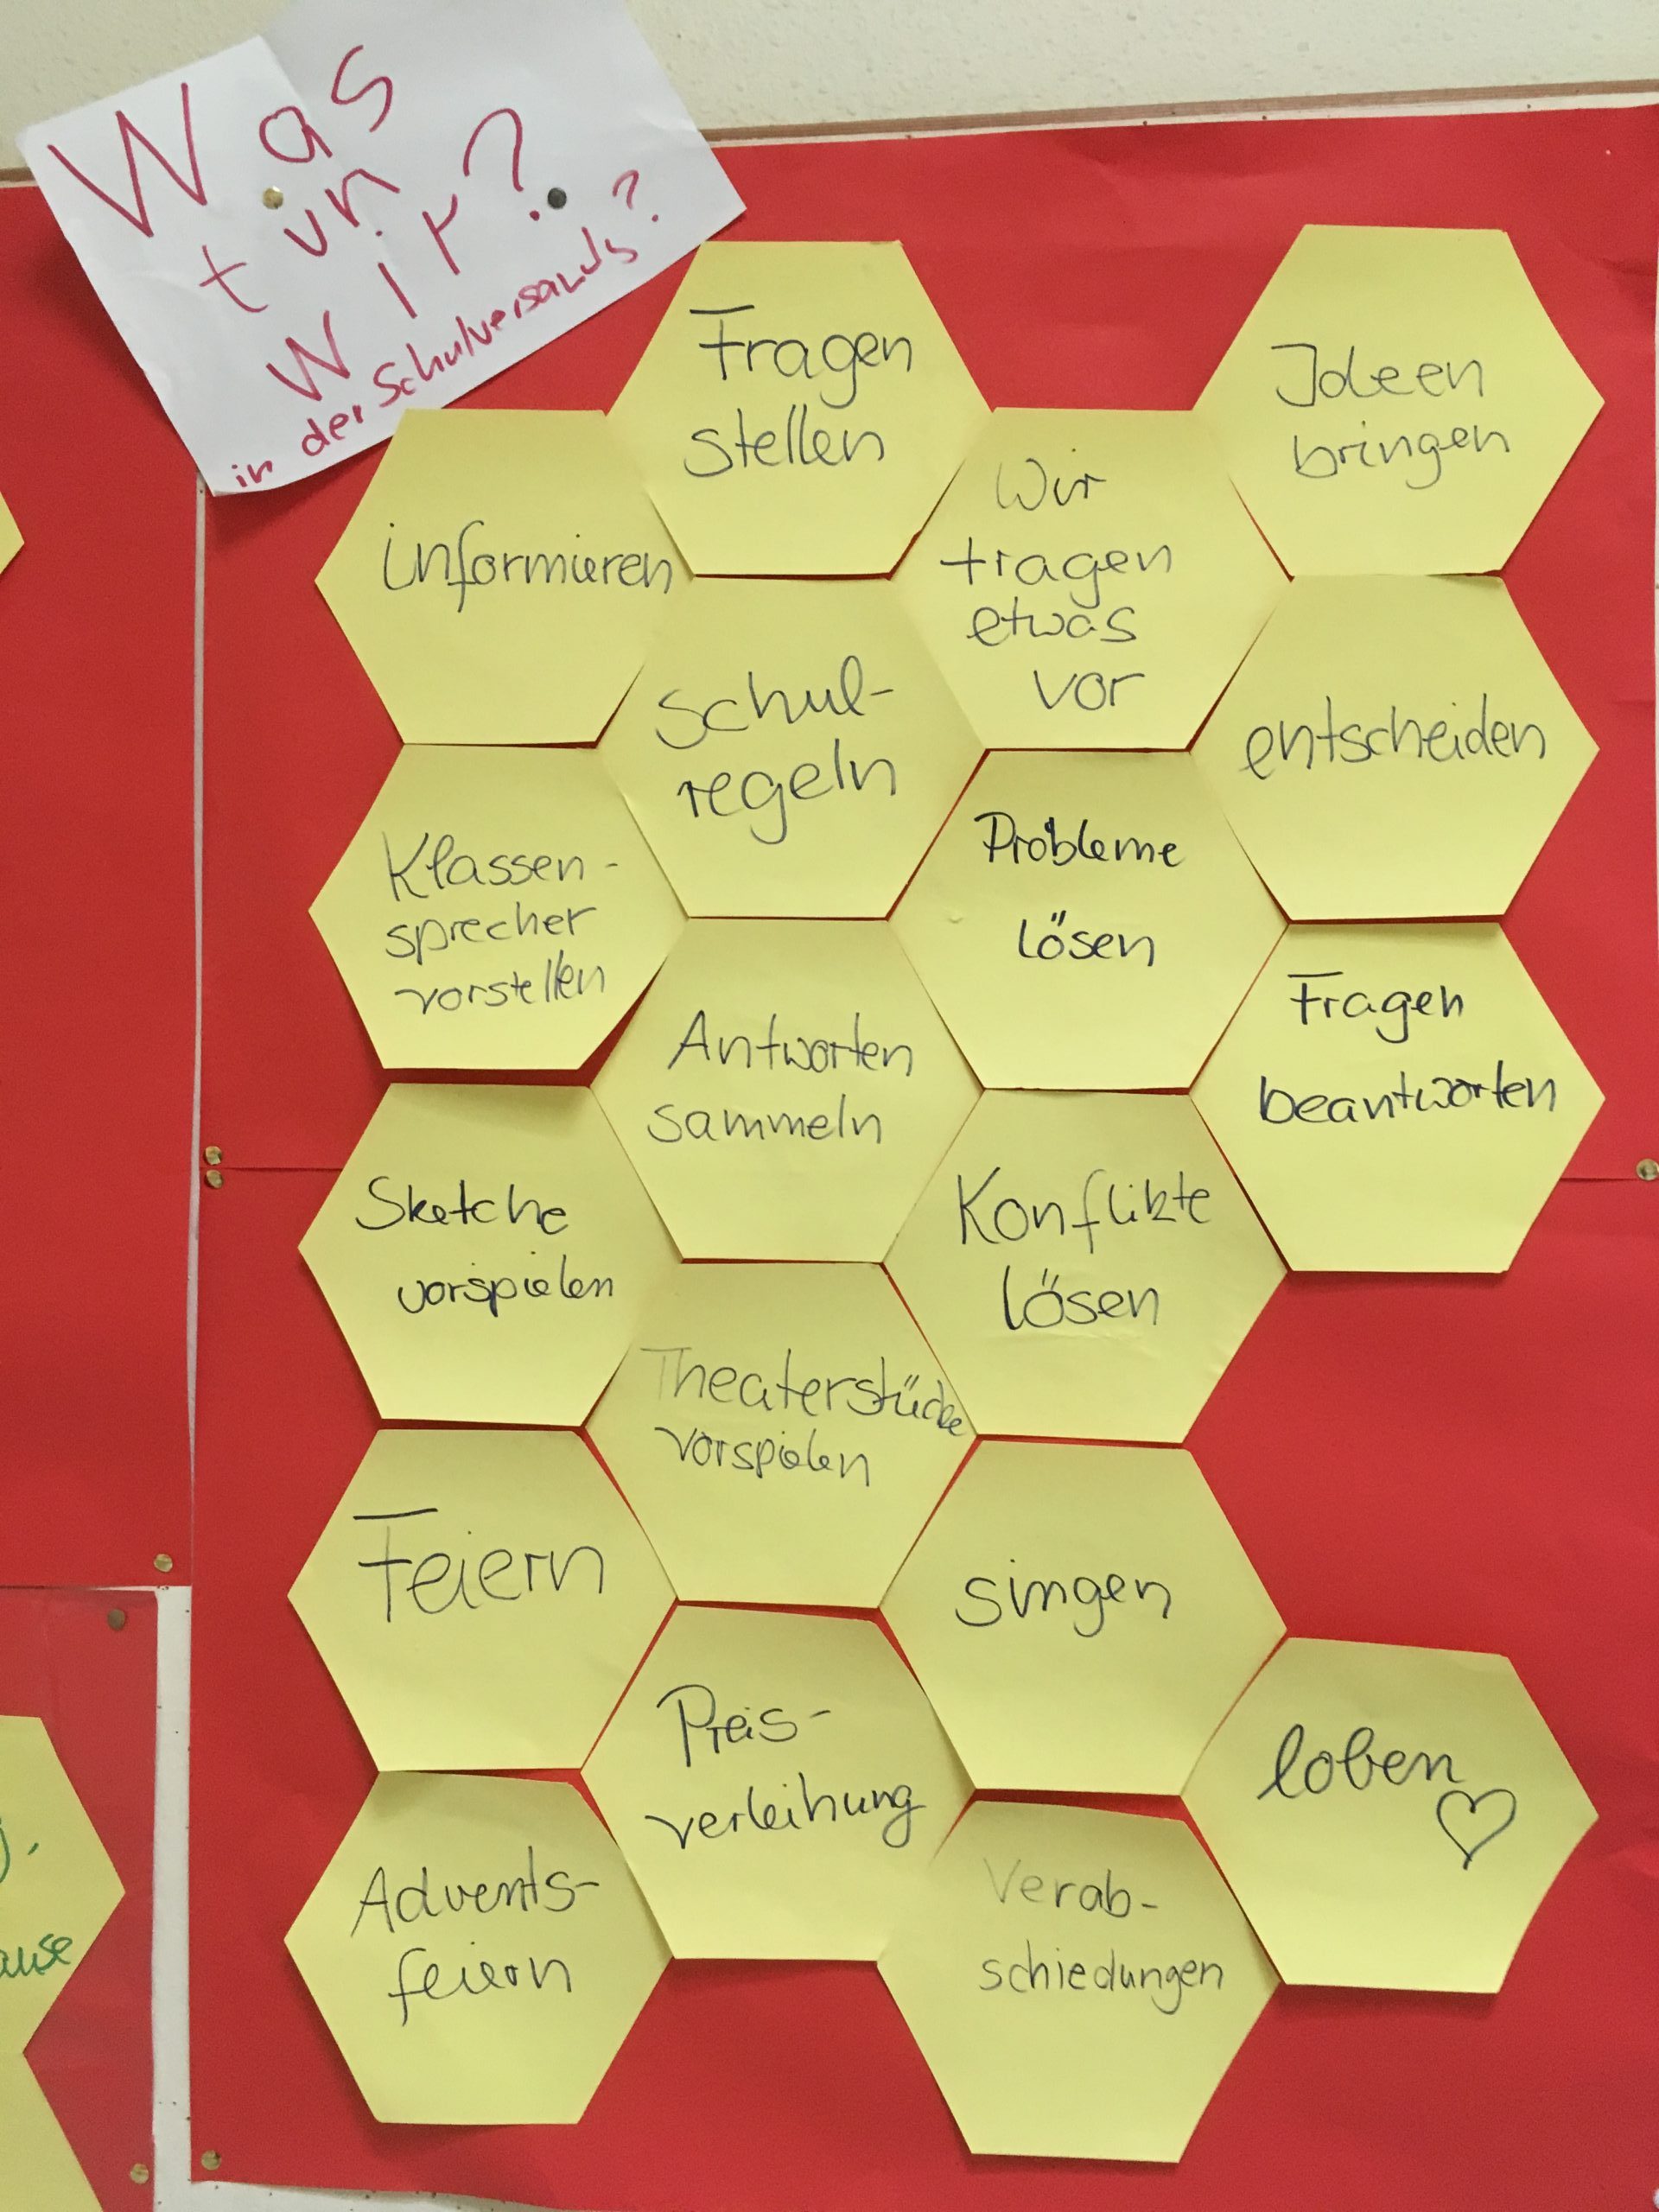 Was
tun
wir?
in der Schulversamls?
Fragen
stellen
Ideen
bringen
informieren
Wir
tragen
etwas
vor
Schul-
regeln
entscheiden
Klassen-
sprecher
vorstellen
Probleme
lösen
Antworten
sammeln
Fragen
beantworten
Sketche
vorspielen
Konflikte
lösen
Theaterstücke
vorspielen
Feiern
singen
Preis-
verleihung
loben
Advents-
feiern
Verab-
schiedungen